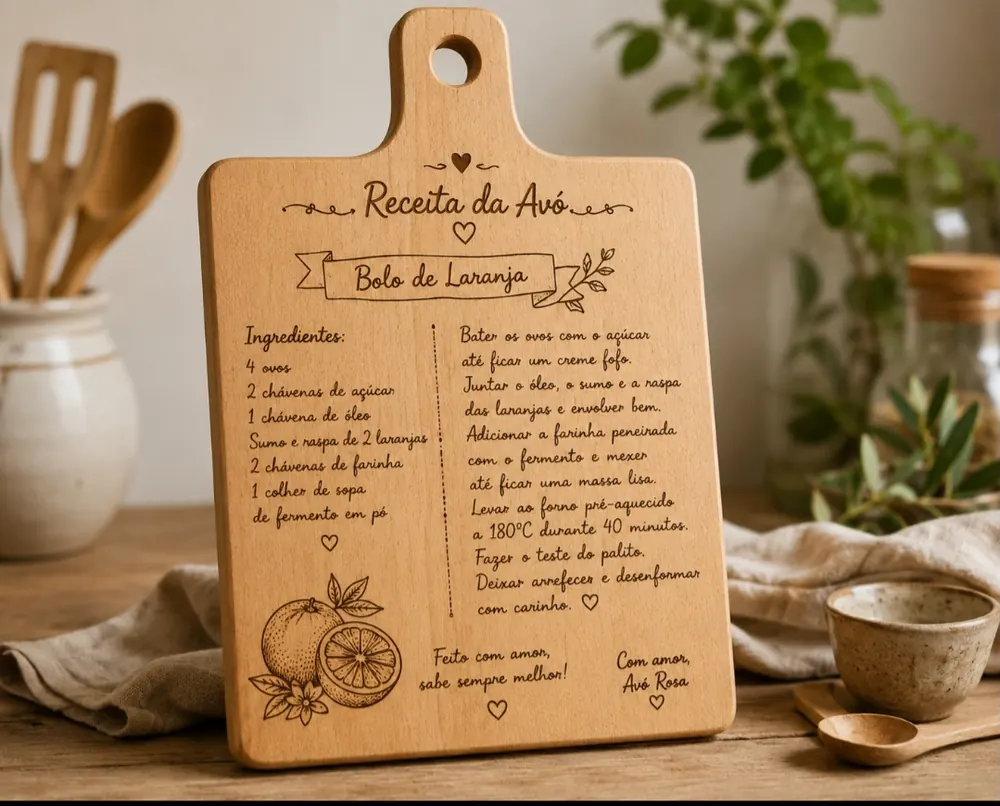 Receita da Avó
Bolo de Laranja
Ingredientes:
4 ovos
2 chávenas de açúcar
1 chávena de óleo
Sumo e raspa de 2 laranjas
2 chávenas de farinha
1 colher de sopa
de fermento em pó
Bater os ovos com o açúcar
até ficar um creme fofo.
Juntar o óleo, o sumo e a raspa
das laranjas e envolver bem.
Adicionar a farinha peneirada
com o fermento e mexer
até ficar uma massa lisa.
Levar ao forno pré-aquecido
a 180°C durante 40 minutos.
Fazer o teste do palito.
Deixar arrefecer e desenformar
com carinho.
Feito com amor,
sabe sempre melhor!
Com amor,
Avó Rosa